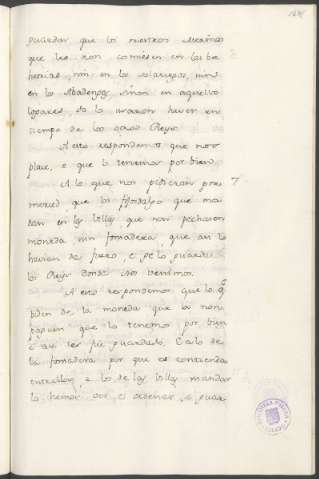 guardar, que los nuestros Merinos
que les non comiesen en las be
hetrias, nin en los solariegos, nin
en los Abadengos sinon en aquellos
logares, do lo usaron hacer en
tiempo de los otros Reyes.
A esto respondemos que nos
place, e que lo tenemos por bien.
A lo que nos pidieron por 7
merced que los fijosdalgo que mo
ran en las Villas que non pecharon
moneda nin fonsadera, que asi lo
havian de fuero, e ge lo guardaron
los Reyes donde nos venimos.
A esto respondemos que lo q
piden de la moneda que la non
paguen que lo tenemos por bien
e asi les fue guardado. E a lo de
la fonsadera por que es contienda
entre ellos, e los de las Villas mandar
lo hemos ver, e ordenar, e guar-